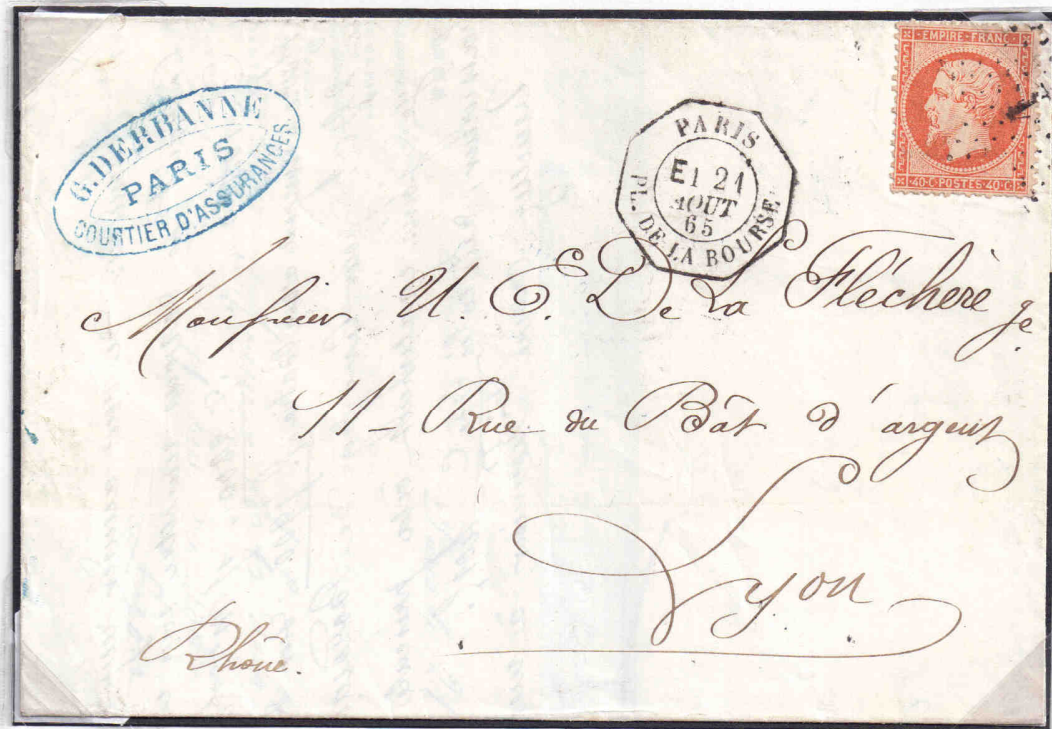 G. DERBANNE
PARIS
COURTIER D'ASSURANCES
PARIS
E1 21
AOUT
65
PL. DE LA BOURSE
EMPIRE FRANC
40 C POSTES 40 C
Monsieur U. E. De La Fléchère Je
11 - Rue du Bât d'argent
Lyon
Rhône.